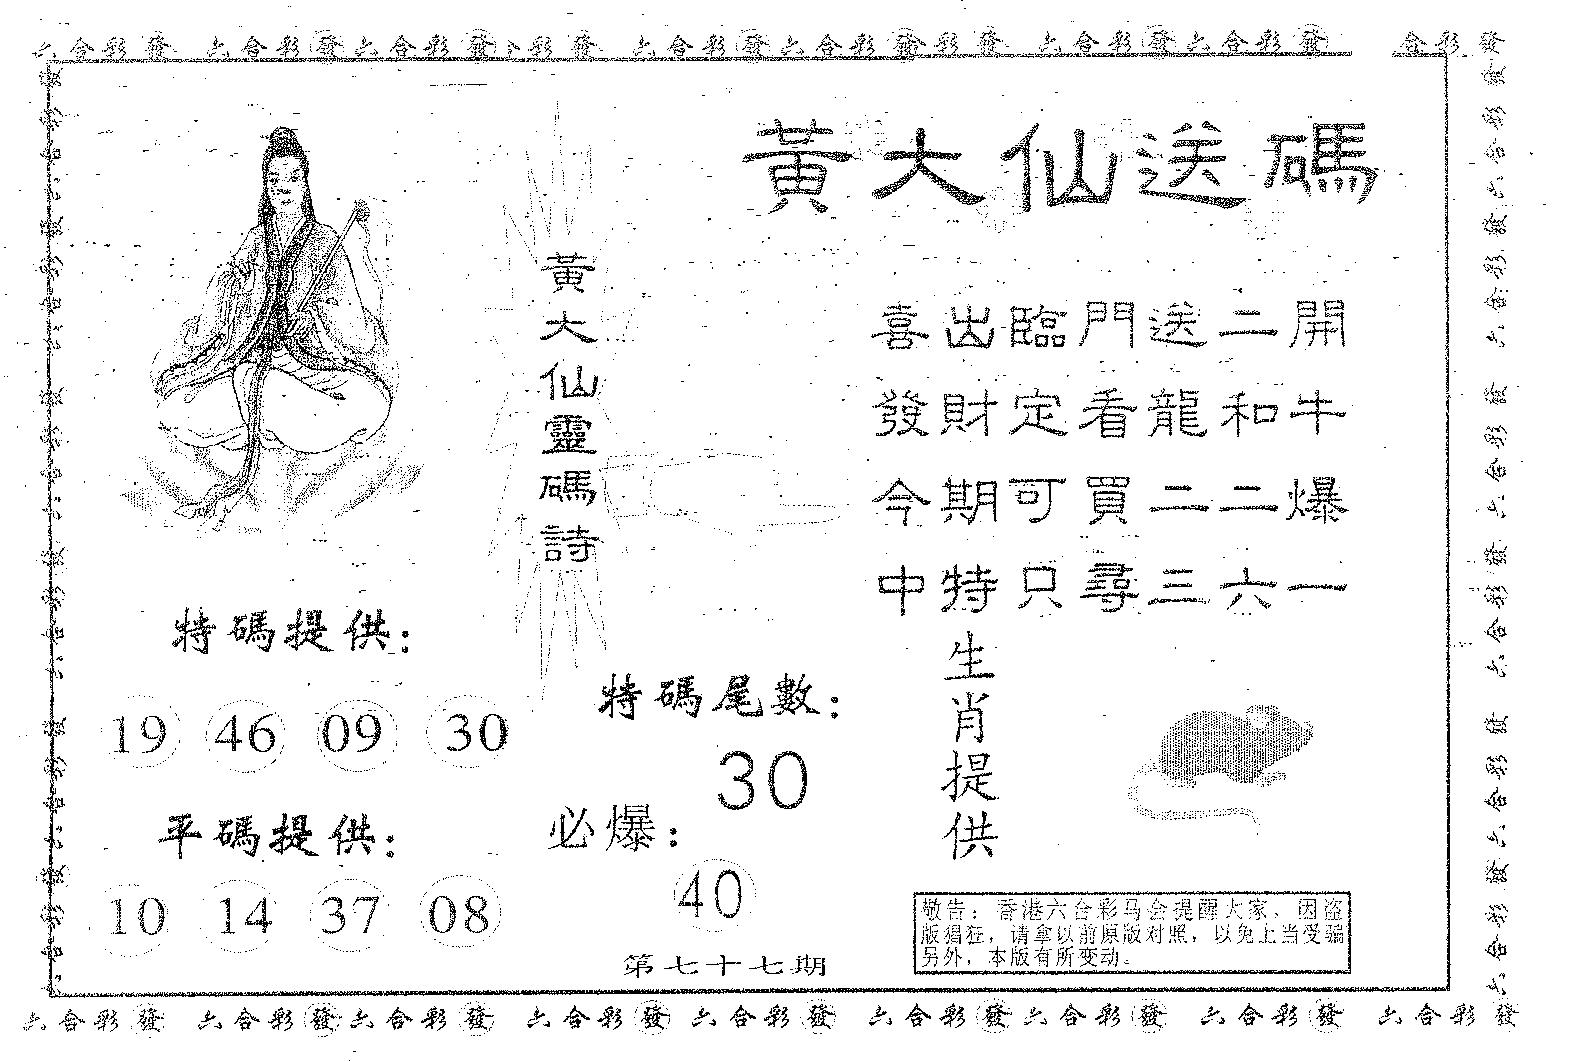 六合彩發 六合彩發 六合彩發 彩發 六合彩發 六合彩發 合彩發 六合彩發 六合彩發 合彩發
黃大仙送碼
黃大仙靈碼詩
喜出臨門送二開
發財定看龍和牛
今期可買二二爆
中特只尋三六一
特碼提供：
19 46 09 30
平碼提供：
10 14 37 08
特碼尾數：
30
必爆：
40
生肖提供
第七十七期
敬告：香港六合彩马会提醒大家，因盗
版猖狂，请拿以前原版对照，以免上当受骗
另外，本版有所变动。
六合彩發 六合彩發 六合彩發 六合彩發 六合彩發 六合彩發 六合彩發 六合彩發 六合彩發